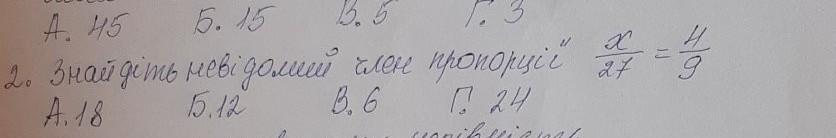 А. 45 Б. 15 В. 5 Г. 3
2. Знайдіть невідомий член пропорції x/27 = 4/9
А. 18 Б. 12 В. 6 Г. 24